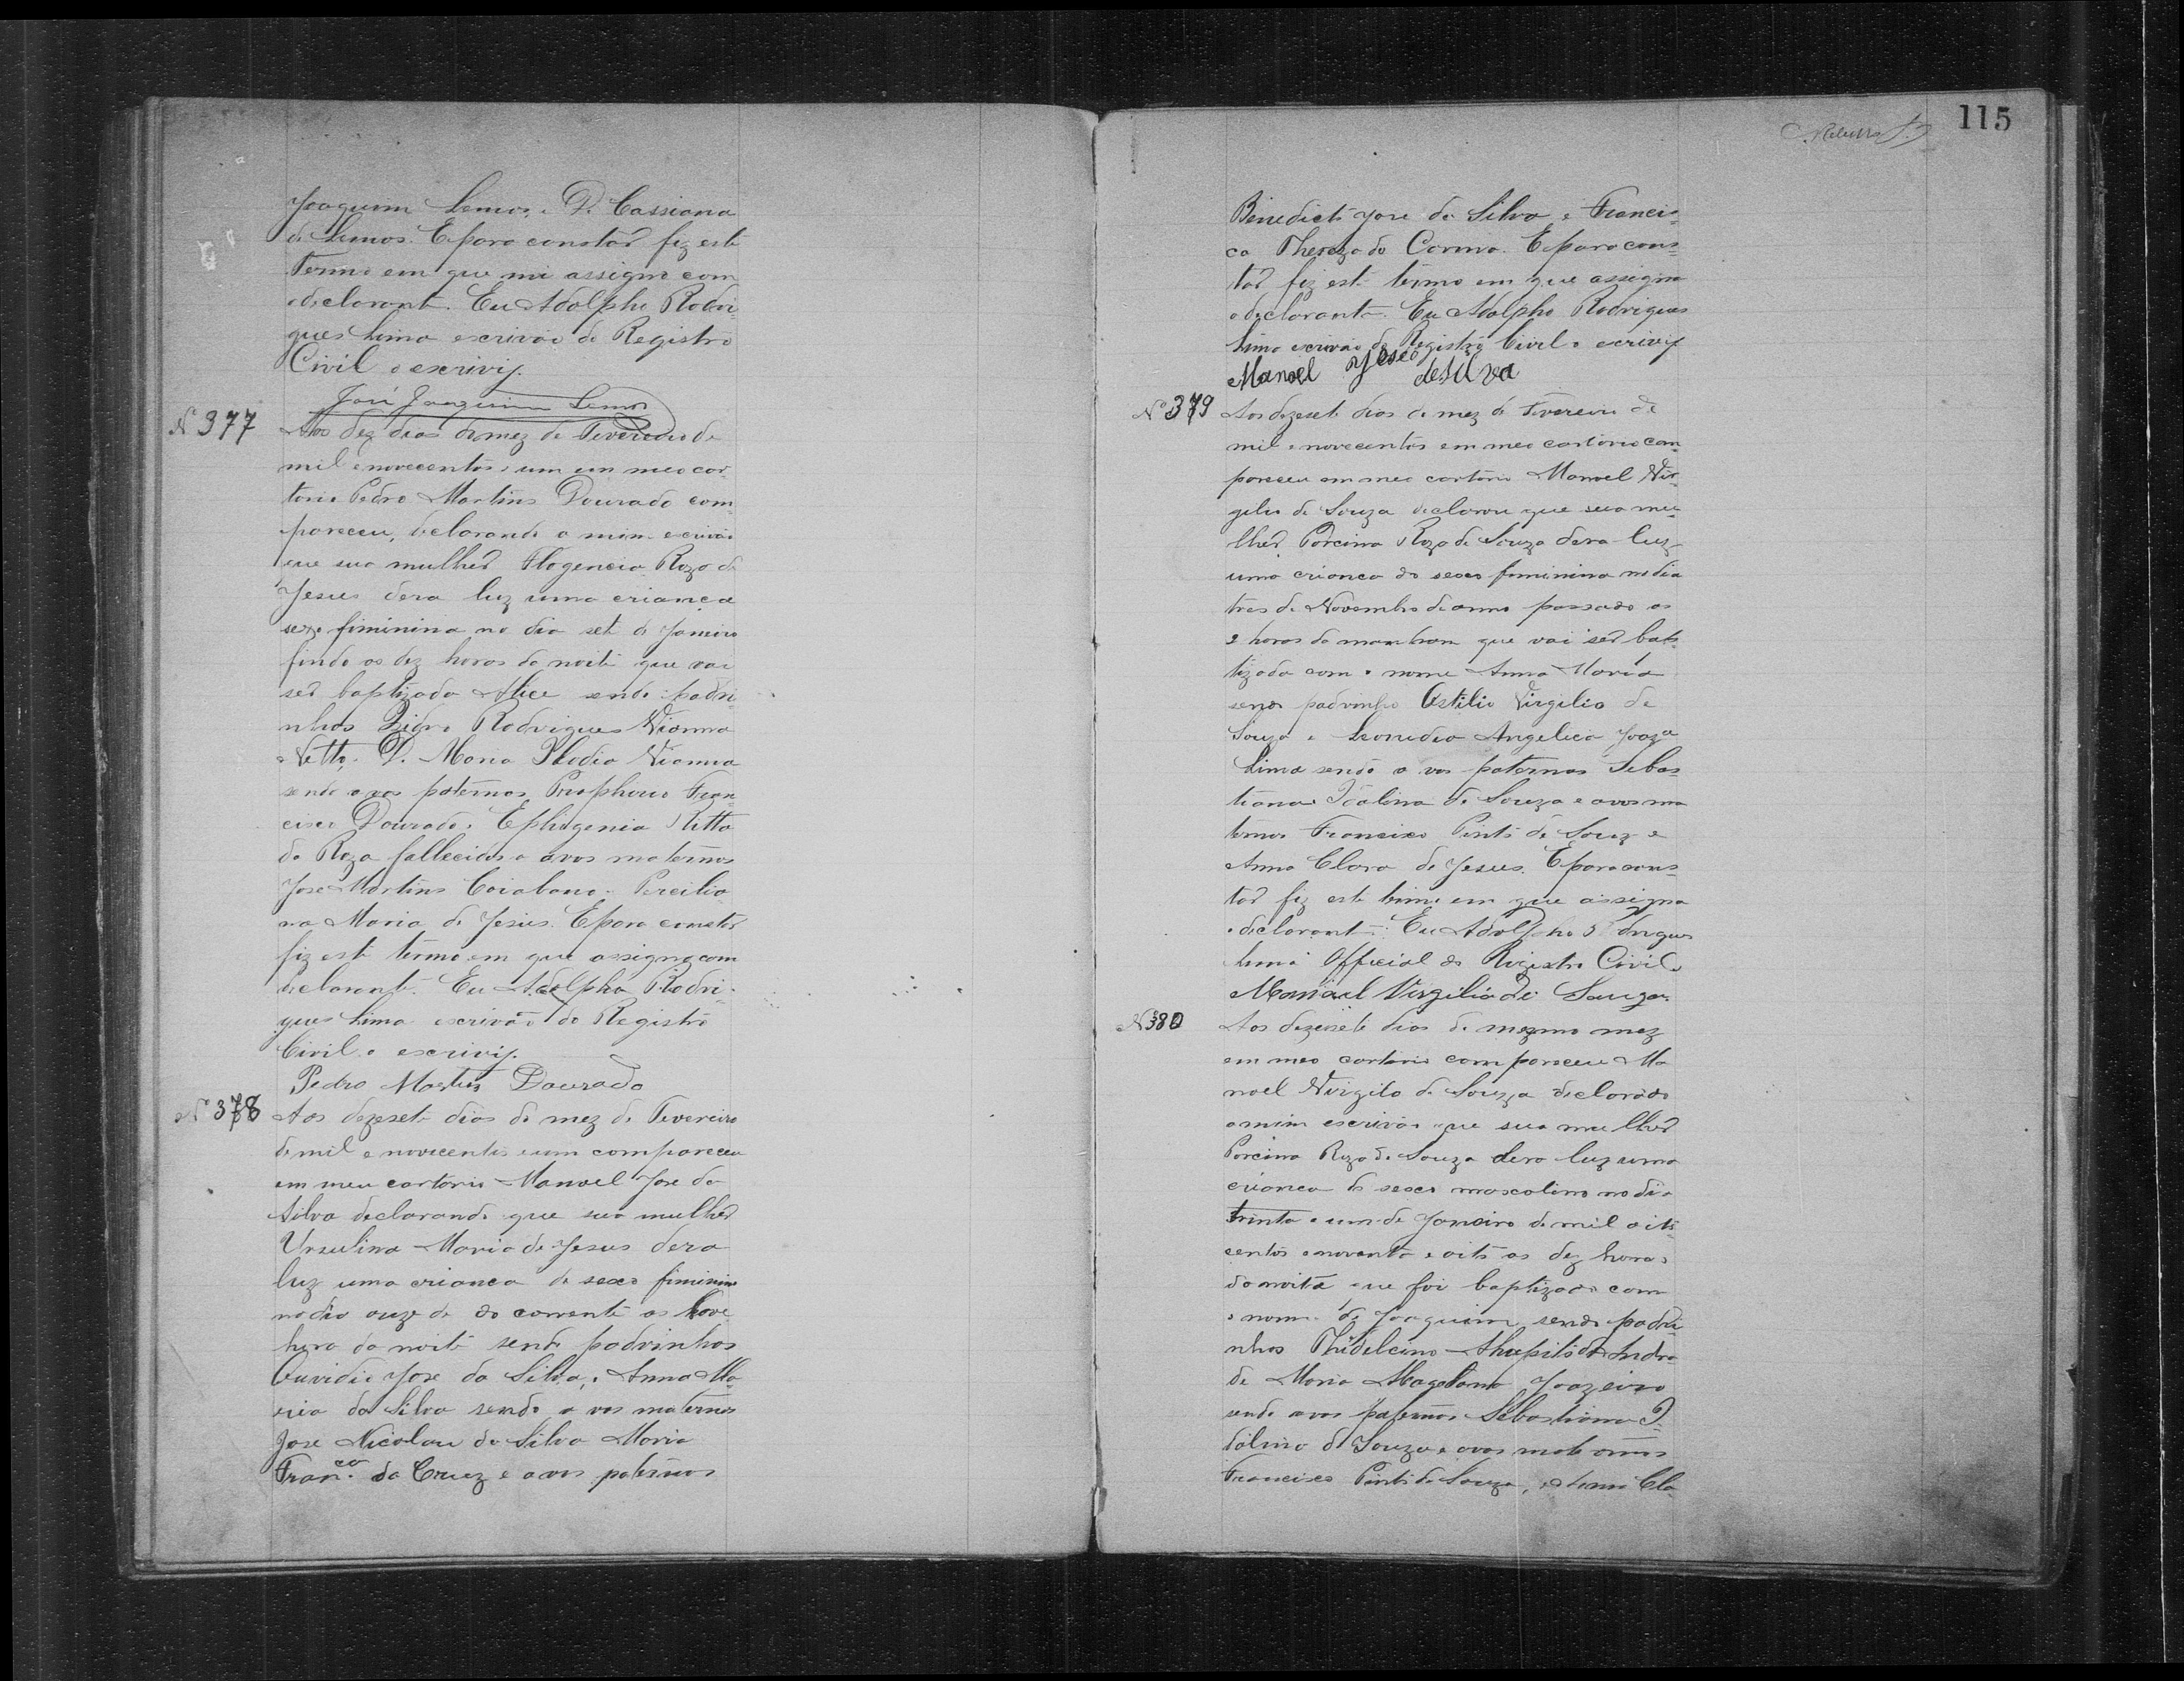 Joaquim Lemos, e D. Cassiana
de Lemos. E para constar fiz este
Termo em que mi assigno com
o declarante. Eu Adolpho Rodri-
gues Lima escrivão do Registro
Civil o escrivi.
José Joaquim Lemos
N 377
Aos dez dias do mez de Fevereiro de
mil e novecentos e um em meo car-
torio Pedro Martins Dourado com-
pareceu, declarando a mim escrivão
que sua mulher Flogencia Roza de
Jesus dera luz uma criança
sexo fiminina no dia sete de Janeiro
findo as dez horas da noite que vai
ser baptizada Alice sendo padri-
nhos Izidro Rodrigues Vianna
Netto, D. Maria Vianna
sendo avos paternos Fran-
cisco Dourado e Ephigenia Ritta
da Roza fallecidos e avos maternos
Jose Martins Coiabano e Percilia-
na Maria de Jesus. E para constar
fiz este termo em que assigno com
declarante. Eu Adolpho Rodri-
gues Lima escrivão do Registro
Civil o escrivi.
Pedro Martins Dourado
N 378
Aos dezesete dias do mez de Fevereiro
de mil e novecentos e um compareceu
em meu cartorio Manoel Jose da
Silva declarando que sua mulher
Ursulina Maria de Jesus dera
luz uma crianca de sexo fiminino
no dia onze de do corrente as nove
hora da noite sendo padrinhos
Ouvidio Jose da Silva, e Anna Ma-
ria da Silva sendo a vos maternos
Jose Nicolau da Silva Maria
Fran.ca da Cruz e avos paternos
115
Benedicto Jose da Silva e Francis-
ca Thereza do Carmo. E para cons-
tar fiz este termo em que assigna
o declarante. Eu Adolpho Rodrigues
Lima escrivão do Registro Civil o escrivi
Manoel José de Silva
Nº 379
Aos dezesete dias do mez de Fevereiro de
mil e novecentos em meo cartorio com-
pareceu em meo cartorio Manoel Vir-
gilio de Souza declarou que sua mu-
lher Porcina Roza de Souza dera luz
uma crianca do sexo fiminina no dia
tres de Novembro de anno passado as
2 horas da manham que vai ser bab-
tizada com o nome Anna Maria
sendo padrinho Ostilio Virgilio de
Souza e Leonidia Angelica
Lima sendo a vos paternos Sebas-
tiana de Souza e avos ma
ternos Francisco Pinto de Souz e
Anna Clara de Jesus. E para cons-
tar fiz este termo em que assigna
o declarante. Eu Adolpho Rodrigues
Lima Official do Registro Civil.
Manoel Virgilio de Souza
N 380
Aos dezesete dias do mezmo mez
em meo cartorio compareceu Ma
noel Virgilo de Souza declarado
a mim escrivão que sua mulher
Porcina Roza de Souza dera luz uma
crianca do sexo mascolino no dia
trinta e um de Janeiro de mil oito
centos e noventa e oito as dez horas
da noite que foi baptizado com
o nome de Joaquim, sendo padri-
nhos Andra-
de Maria Magdalena
sendo avos paternos Sebastiana I-
dalina de Souza e avos maternos
Francisco Pinto de Souza, e Anna Cla-